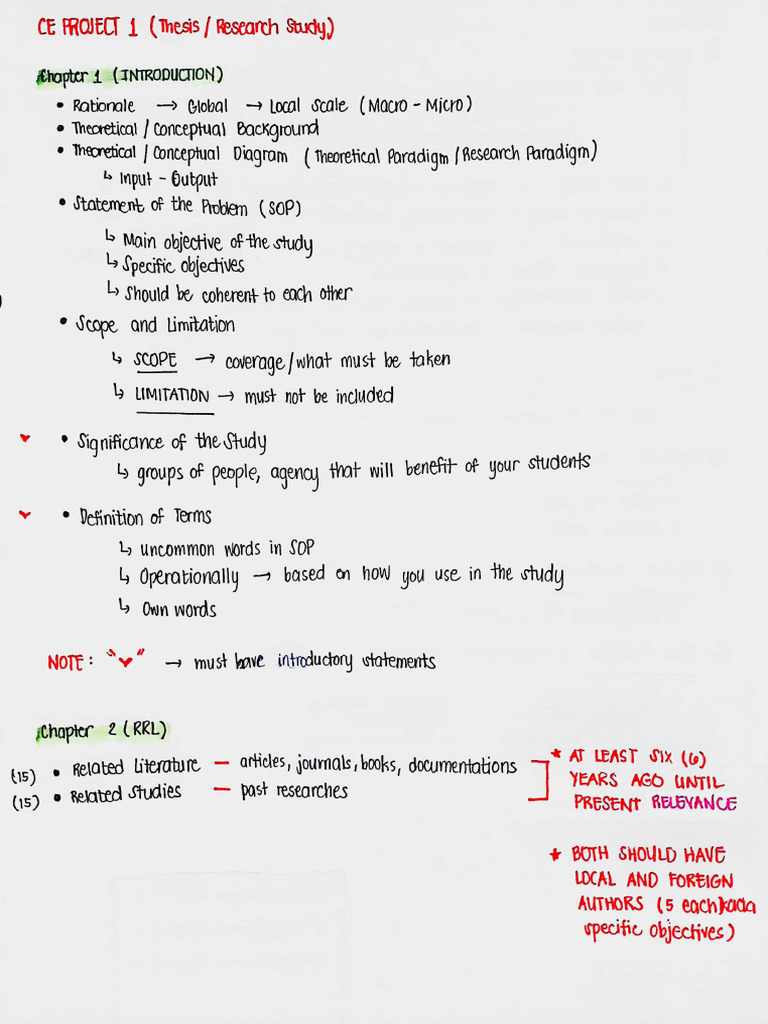 CE PROJECT 1 (Thesis / Research Study)
Chapter 1 (INTRODUCTION)
• Rationale → Global → Local Scale (Macro - Micro)
• Theoretical / Conceptual Background
• Theoretical / Conceptual Diagram (Theoretical Paradigm / Research Paradigm)
↳ Input - Output
• Statement of the Problem (SOP)
↳ Main objective of the study
↳ Specific objectives
↳ Should be coherent to each other
• Scope and Limitation
↳ SCOPE → coverage/what must be taken
↳ LIMITATION → must not be included
• Significance of the Study
↳ groups of people, agency that will benefit of your students
• Definition of Terms
↳ uncommon words in SOP
↳ Operationally → based on how you use in the study
↳ Own words
NOTE: "♥" → must have introductory statements
Chapter 2 (RRL)
(15) • Related Literature — articles, journals, books, documentations
(15) • Related Studies — past researches
* AT LEAST SIX (6)
YEARS AGO UNTIL
PRESENT RELEVANCE
* BOTH SHOULD HAVE
LOCAL AND FOREIGN
AUTHORS (5 each) kada
specific objectives)